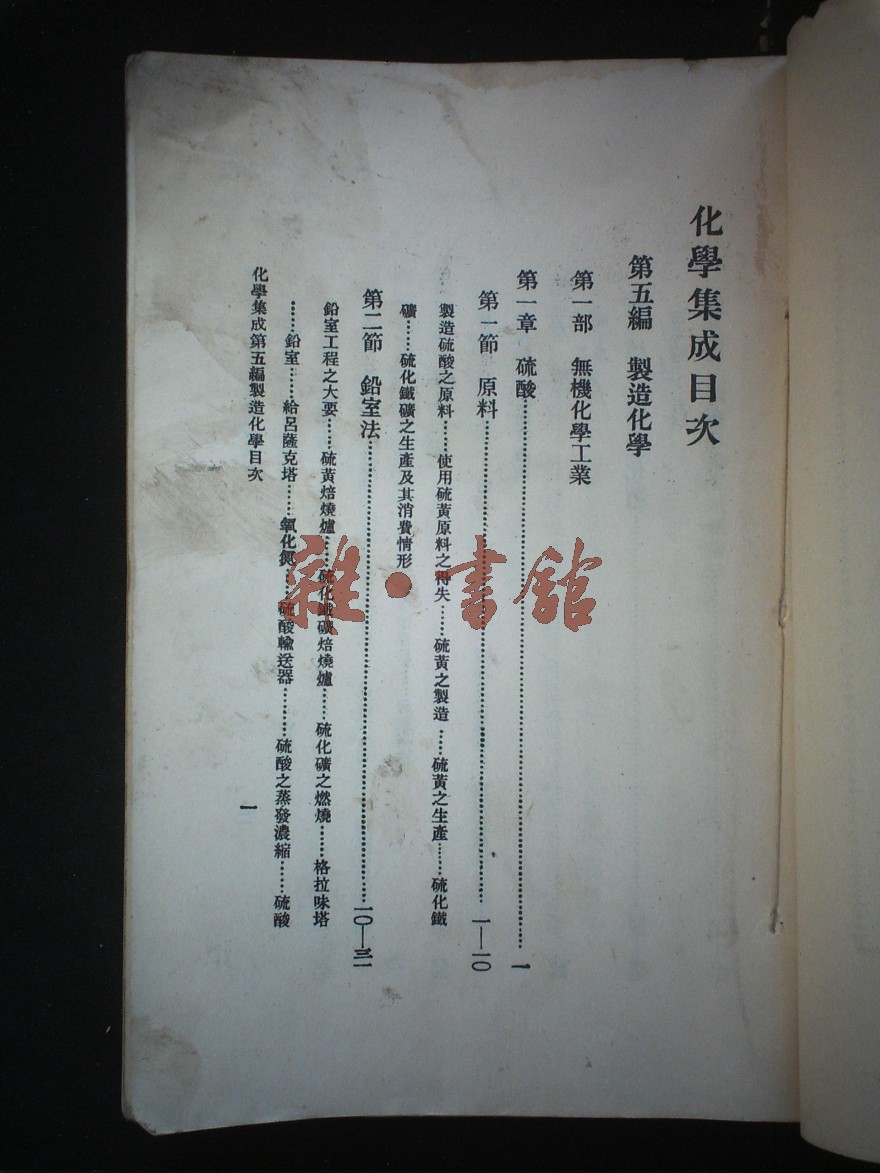 化學集成目次
第五編　製造化學
第一部　無機化學工業
第一章　硫酸……一
第一節　原料……一—一〇
製造硫酸之原料……使用硫黃原料之得失……硫黃之製造……硫黃之生產……硫化鐵
礦……硫化鐵礦之生產及其消費情形
第二節　鉛室法……一〇—三一
鉛室工程之大要……硫黃焙燒爐……硫化鐵礦焙燒爐……硫化礦之燃燒……格拉味塔
……鉛室……給呂薩克塔……氧化氮……硫酸輸送器……硫酸之蒸發濃縮……硫酸
化學集成第五編製造化學目次
一
雜·書館